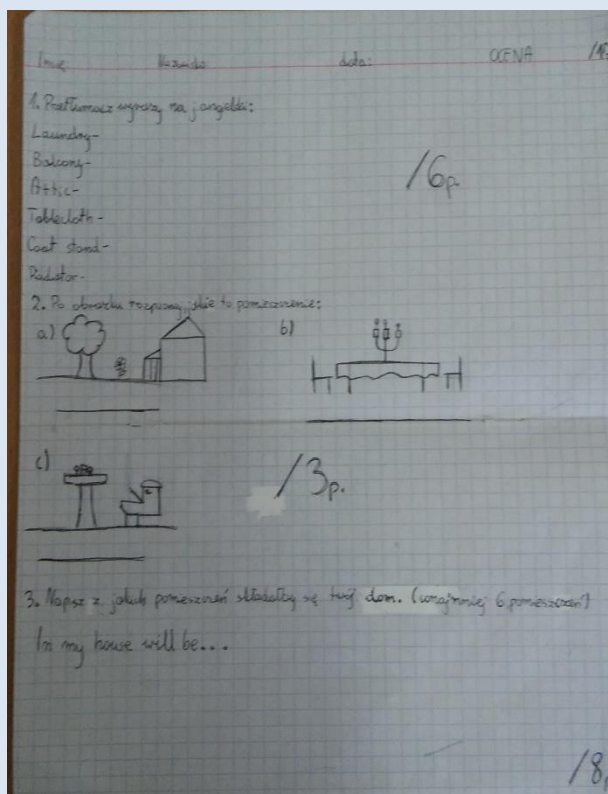 Imię: Nazwisko data: OCENA
1. Przetłumacz wyrazy na j. angielski:
Laundry-
Balcony-
Attic-
/6p.
Tablecloth-
Coat stand-
Radiator-
2. Po obrazku rozpoznaj, jakie to pomieszczenie:
a) b)
c)
/3p.
3. Napisz z jakich pomieszczeń składałby się twój dom. (conajmniej 6 pomieszczeń)
In my house will be...
/8